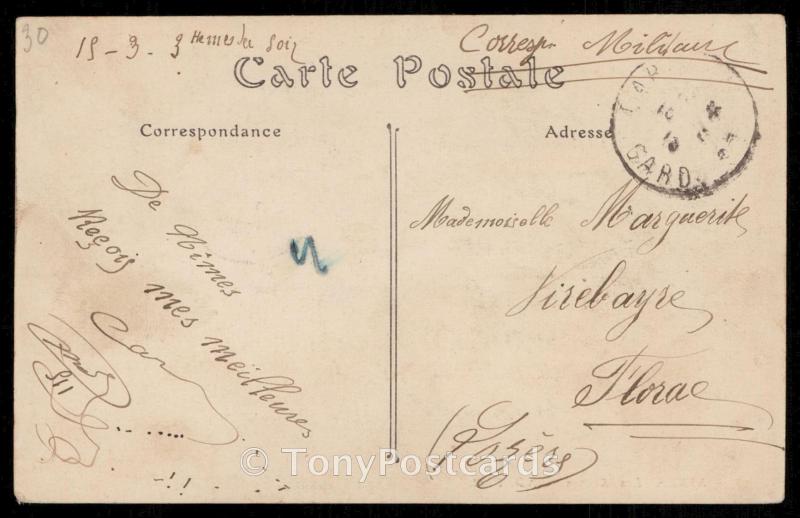 30
15 - 3 - 3 hemes du soir
Corresp. Militaire
Carte Postale
Correspondance
Adresse
GARD
De Nîmes
Reçois mes meilleures
Mademoiselle Marguerite
Virebayre
Florac
(Lozère)
© TonyPostcards